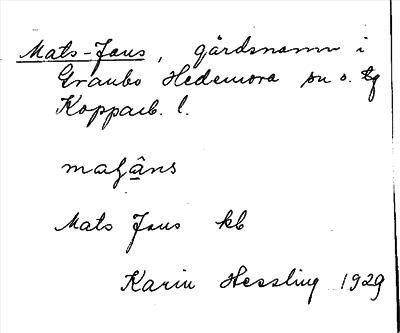 Mats-Jans, gårdsnamn i
Graubo Hedemora sn o. tg
Kopparb. l.
Mats Jans kb
Karin Hessling 1929